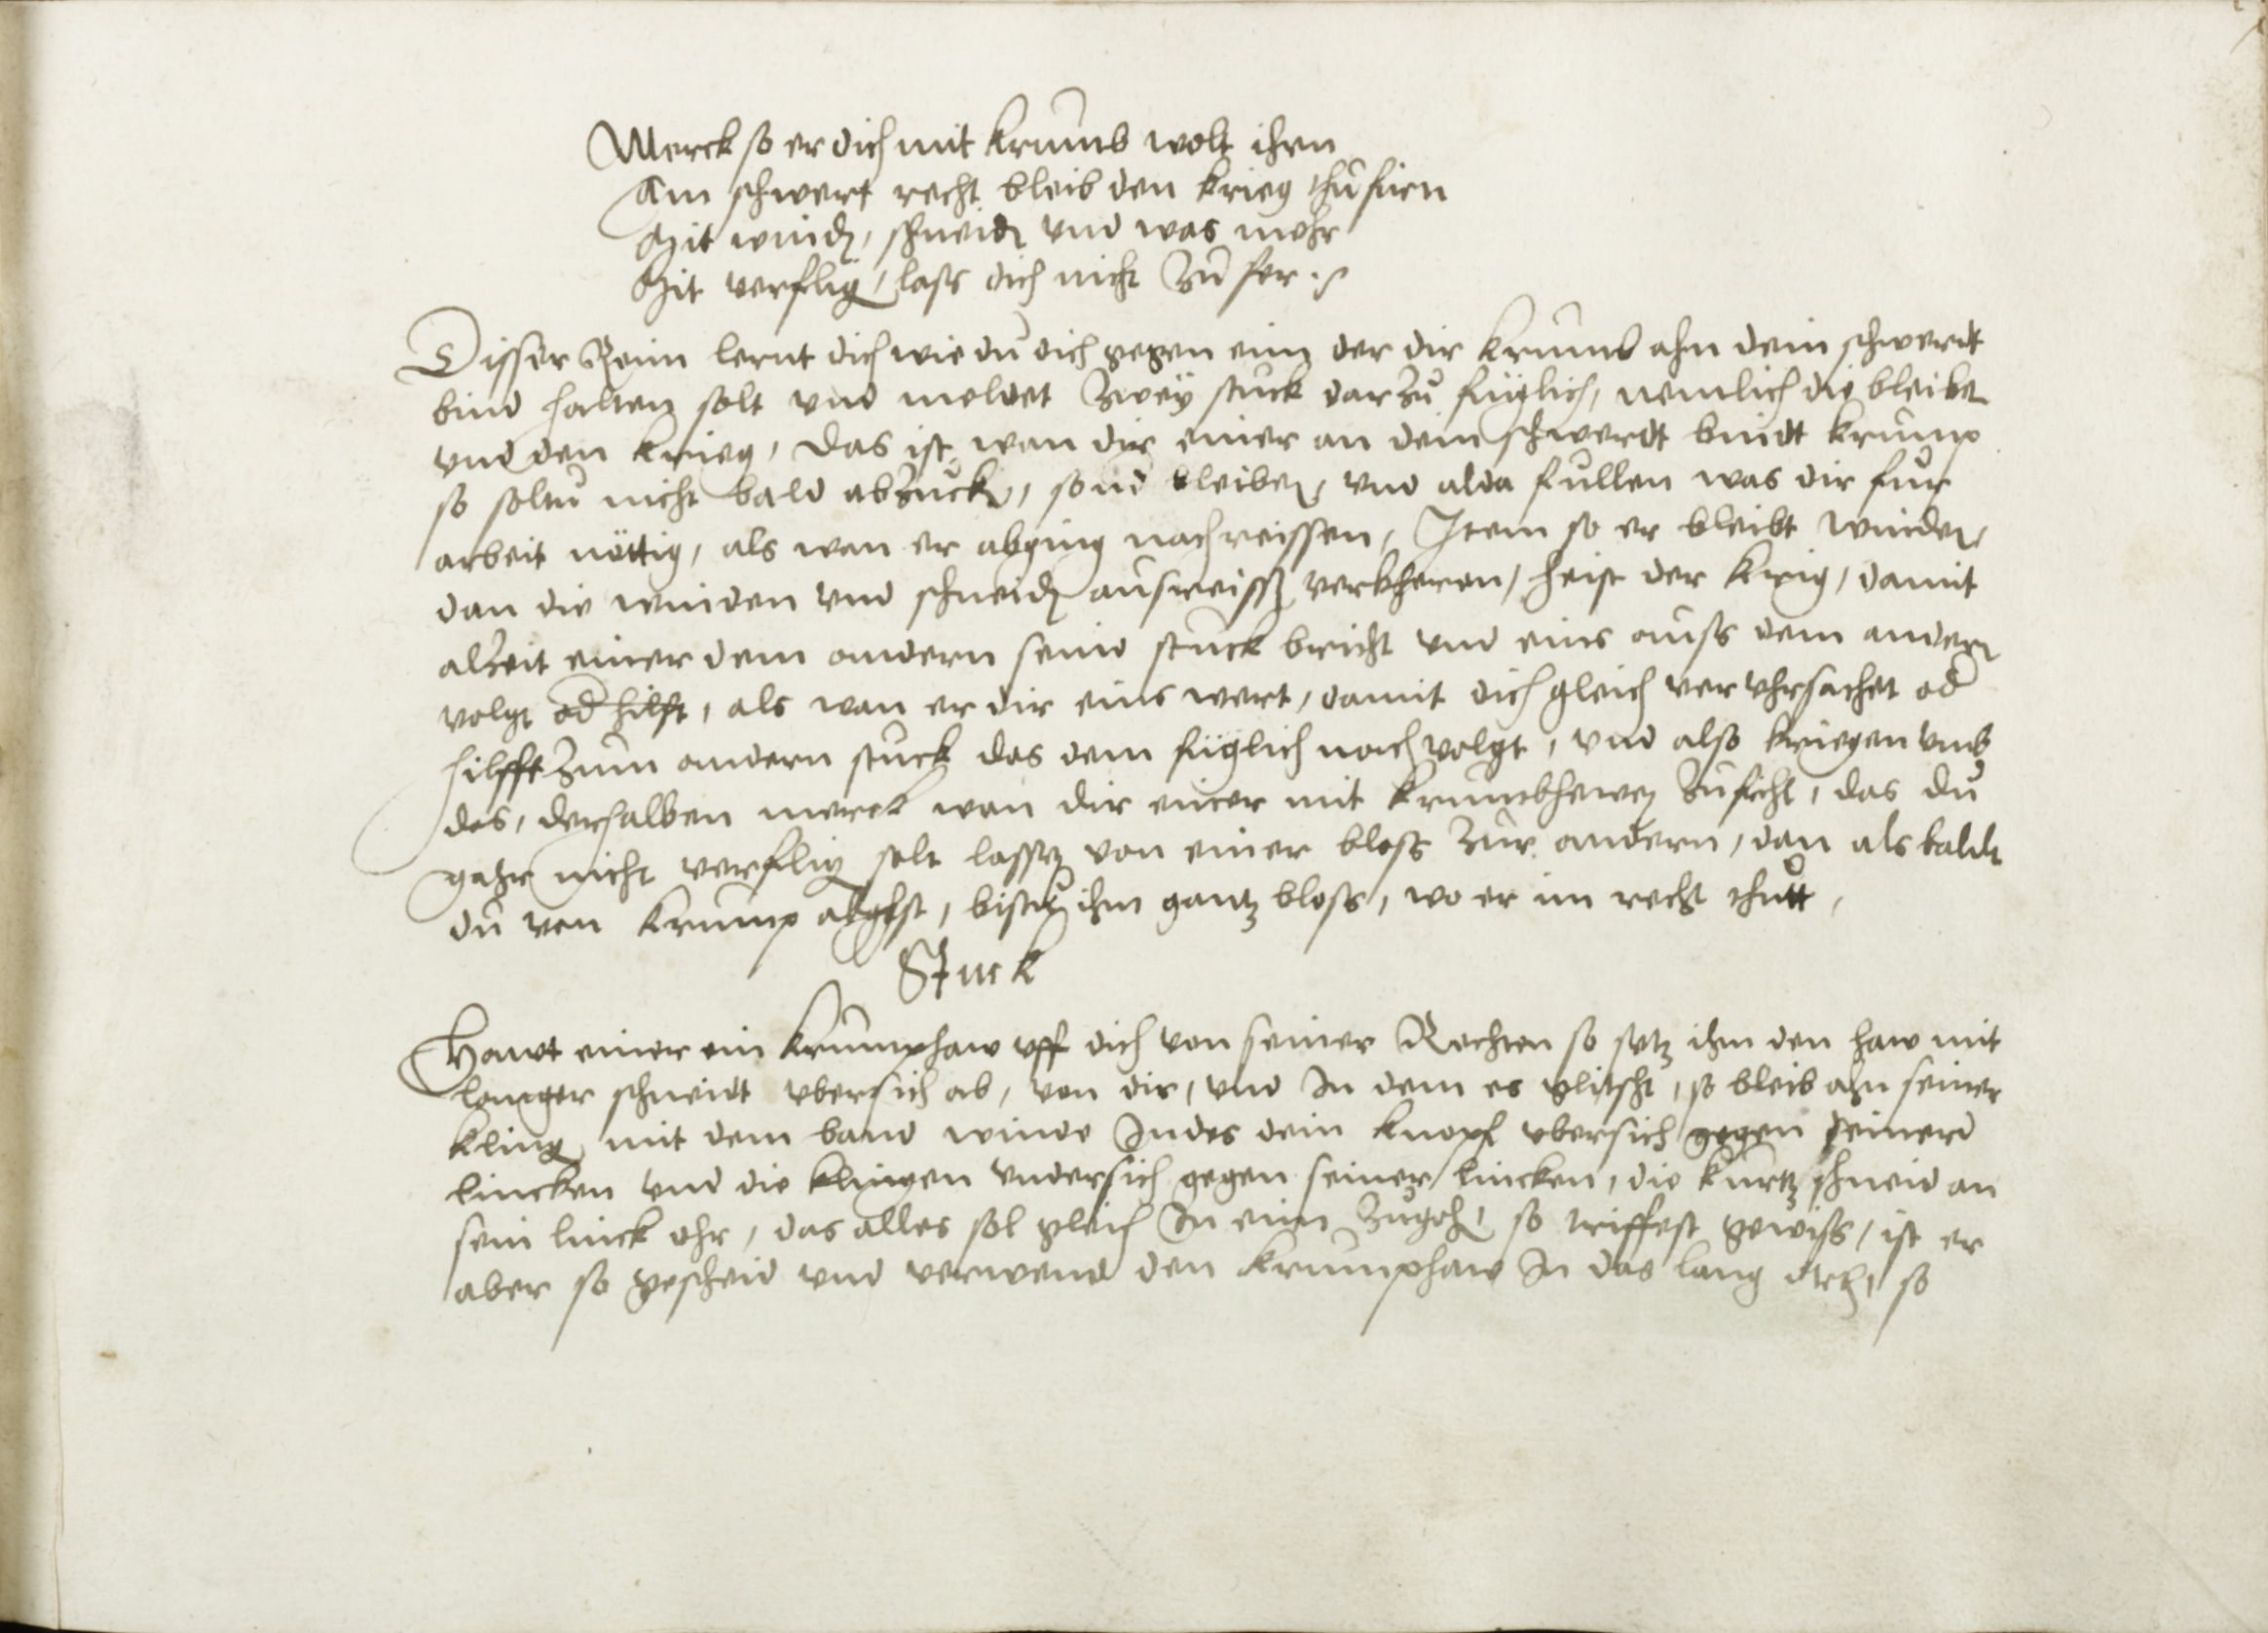 Merck so er dich mit krumb wolt ihren
Am schwert recht bleib den krieg thu füren
Mit windẽ, schneidẽ vnd was mehr
Mit verfligẽ lass dich nicht zu ser
Disser Reim lernt dich wie du dich gegen eim der dir krumb ahn dein schwerdt
bind halten solt vnd meldet zwey stuck darzu füglich, nemlich die bleibẽ
vnd den krieg, das ist wan dir einer an dein schwerdt bindt krump
so soltu nicht bald abzuckẽ, sond bleibẽ, vnd alda fullen was dir fur
arbeit nöttig, als wan er abging nachreissen, Item so er bleibt windẽ,
dan die winden vnd schneidẽ ausweissẽ verkheren, heist der krig, damit
alzeit einer dem andern seine stuck bricht vnd eins auss dem andern
volgt od hilft, als wan er dir eins wert, damit dich gleich verVhrsachet od
hilfft zum andern stuck das dem füglich nach volgt, vnd also kriegen vmb
des, derhalben merck wan dir einer mit krumbhewẽ zuficht, das du
gahr nicht verfligẽ solt lassẽ von einer bloss zur andern, dan als baldt
du von krump abgehst, bistu ihm gantz bloss, wo er im recht thutt,
Stuck
Hawt einer ein krumphaw vff dich von seiner Rechten so setz ihm den haw mit
langer schneidt vbersich ab, von dir, vnd In dem es glitscht, so bleib ahn seiner
klingẽ mit dem band winde Indes dein knopf vbersich gegen deiner
lincken vnd die klingen vndersich gegen seiner lincken, die kurtz schneid an
sein linck ohr, das alles sol gleich In eim zugehẽ, so triffest gewiss, ist er
aber so gescheid vnd verwend den krumphaw In das lang ortt, so